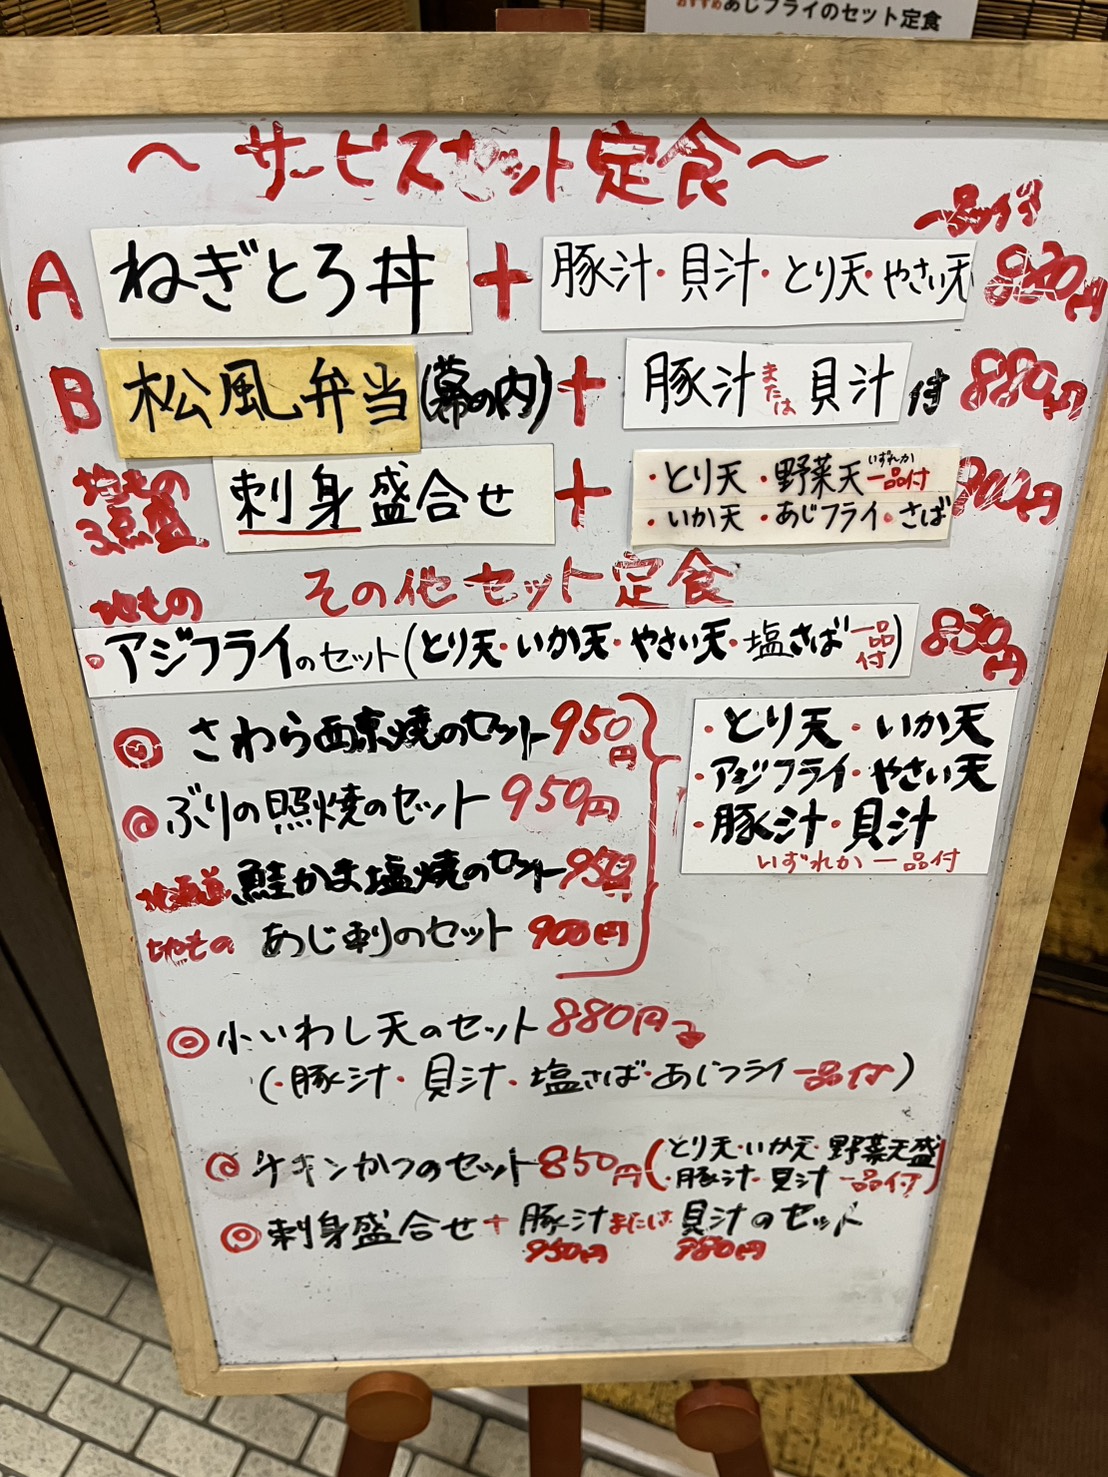 おすすめあじフライのセット定食
～サービスセット定食～
一品付
A ねぎとろ丼 + 豚汁・貝汁・とり天・やさい天 820円
B 松風弁当(幕の内)+ 豚汁または貝汁付 880円
地もの3点盛 刺身盛合せ + ・とり天・野菜天いずれか一品付
・いか天・あじフライ・さば 900円
その他セット定食
地もの
・アジフライのセット(とり天・いか天・やさい天・塩さば一品付) 830円
◎さわら西京焼のセット950円
◎ぶりの照焼のセット950円
北海道 鮭かま塩焼のセット950円
地もの あじ刺のセット900円
・とり天・いか天
・アジフライ・やさい天
・豚汁・貝汁
いずれか一品付
◎小いわし天のセット880円
(・豚汁・貝汁・塩さば・あじフライ一品付)
◎チキンかつのセット850円(とり天・いか天・野菜天盛
・豚汁・貝汁 一品付)
◎刺身盛合せ+豚汁または貝汁のセット
950円 980円